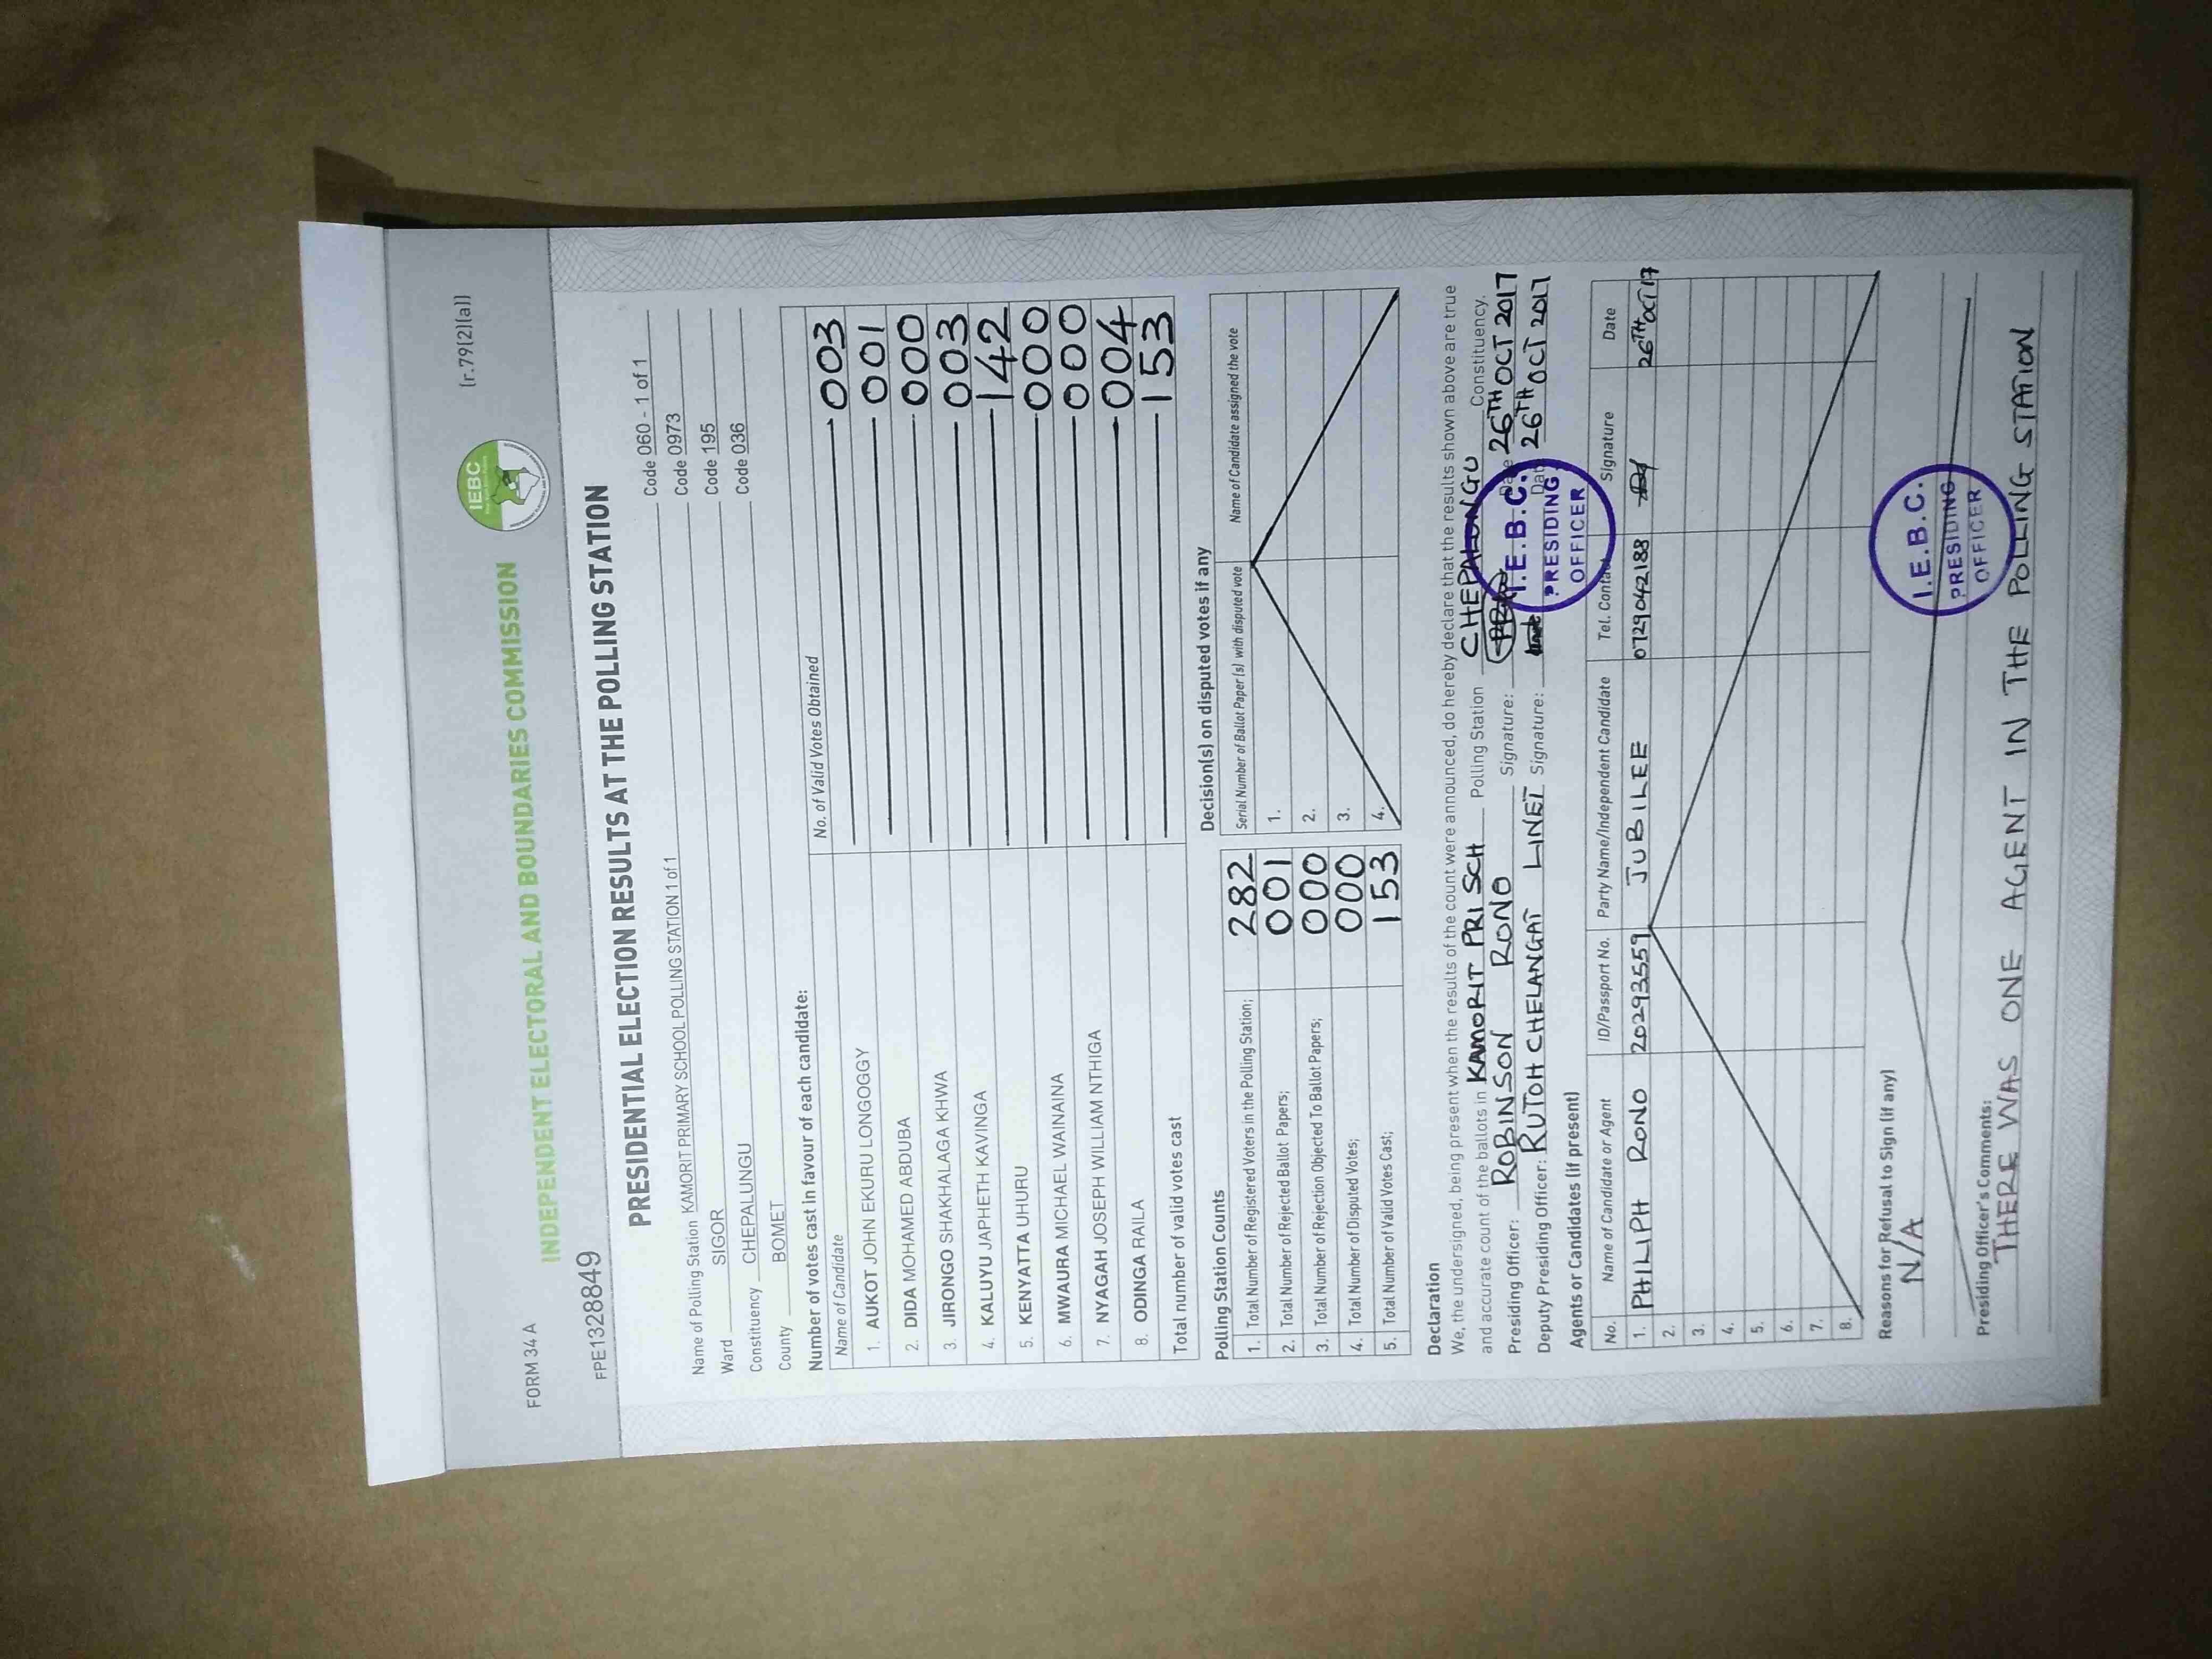 FORM 34 A
IEBC
(r.79(2)(a))
INDEPENDENT ELECTORAL AND BOUNDARIES COMMISSION
FPE1328849
PRESIDENTIAL ELECTION RESULTS AT THE POLLING STATION
Name of Polling Station KAMORIT PRIMARY SCHOOL POLLING STATION 1 of 1 Code 060 - 1 of 1
Ward SIGOR Code 0973
Constituency CHEPALUNGU Code 195
County BOMET Code 036
Number of votes cast in favour of each candidate:
Name of Candidate No. of Valid Votes Obtained
1. AUKOT JOHN EKURU LONGOGGY 003
2. DIDA MOHAMED ABDUBA 001
3. JIRONGO SHAKHALAGA KHWA 000
4. KALUYU JAPHETH KAVINGA 003
5. KENYATTA UHURU 142
6. MWAURA MICHAEL WAINAINA 000
7. NYAGAH JOSEPH WILLIAM NTHIGA 000
8. ODINGA RAILA 004
Total number of valid votes cast 153
Polling Station Counts
1. Total Number of Registered Voters in the Polling Station; 282
2. Total Number of Rejected Ballot Papers; 001
3. Total Number of Rejection Objected To Ballot Papers; 000
4. Total Number of Disputed Votes; 000
5. Total Number of Valid Votes Cast; 153
Decision(s) on disputed votes if any
Serial Number of Ballot Paper (s) with disputed vote Name of Candidate assigned the vote
1.
2.
3.
4.
Declaration
We, the undersigned, being present when the results of the count were announced, do hereby declare that the results shown above are true
and accurate count of the ballots in KAMORIT PRI SCH Polling Station CHEPALUNGU Constituency.
Presiding Officer: ROBINSON RONO Signature: Date 26TH OCT 2017
Deputy Presiding Officer: RUTOH CHELANGAT LINET Signature: Date 26TH OCT 2017
I.E.B.C.
PRESIDING
OFFICER
Agents or Candidates (if present)
No. Name of Candidate or Agent ID/Passport No. Party Name/Independent Candidate Tel. Contact Signature Date
1. PHILIPH RONO 20293559 JUBILEE 0729042188 26TH OCT 17
2.
3.
4.
5.
6.
7.
8.
Reasons for Refusal to Sign (if any)
N/A
I.E.B.C.
PRESIDING
OFFICER
Presiding Officer's Comments:
THERE WAS ONE AGENT IN THE POLLING STATION